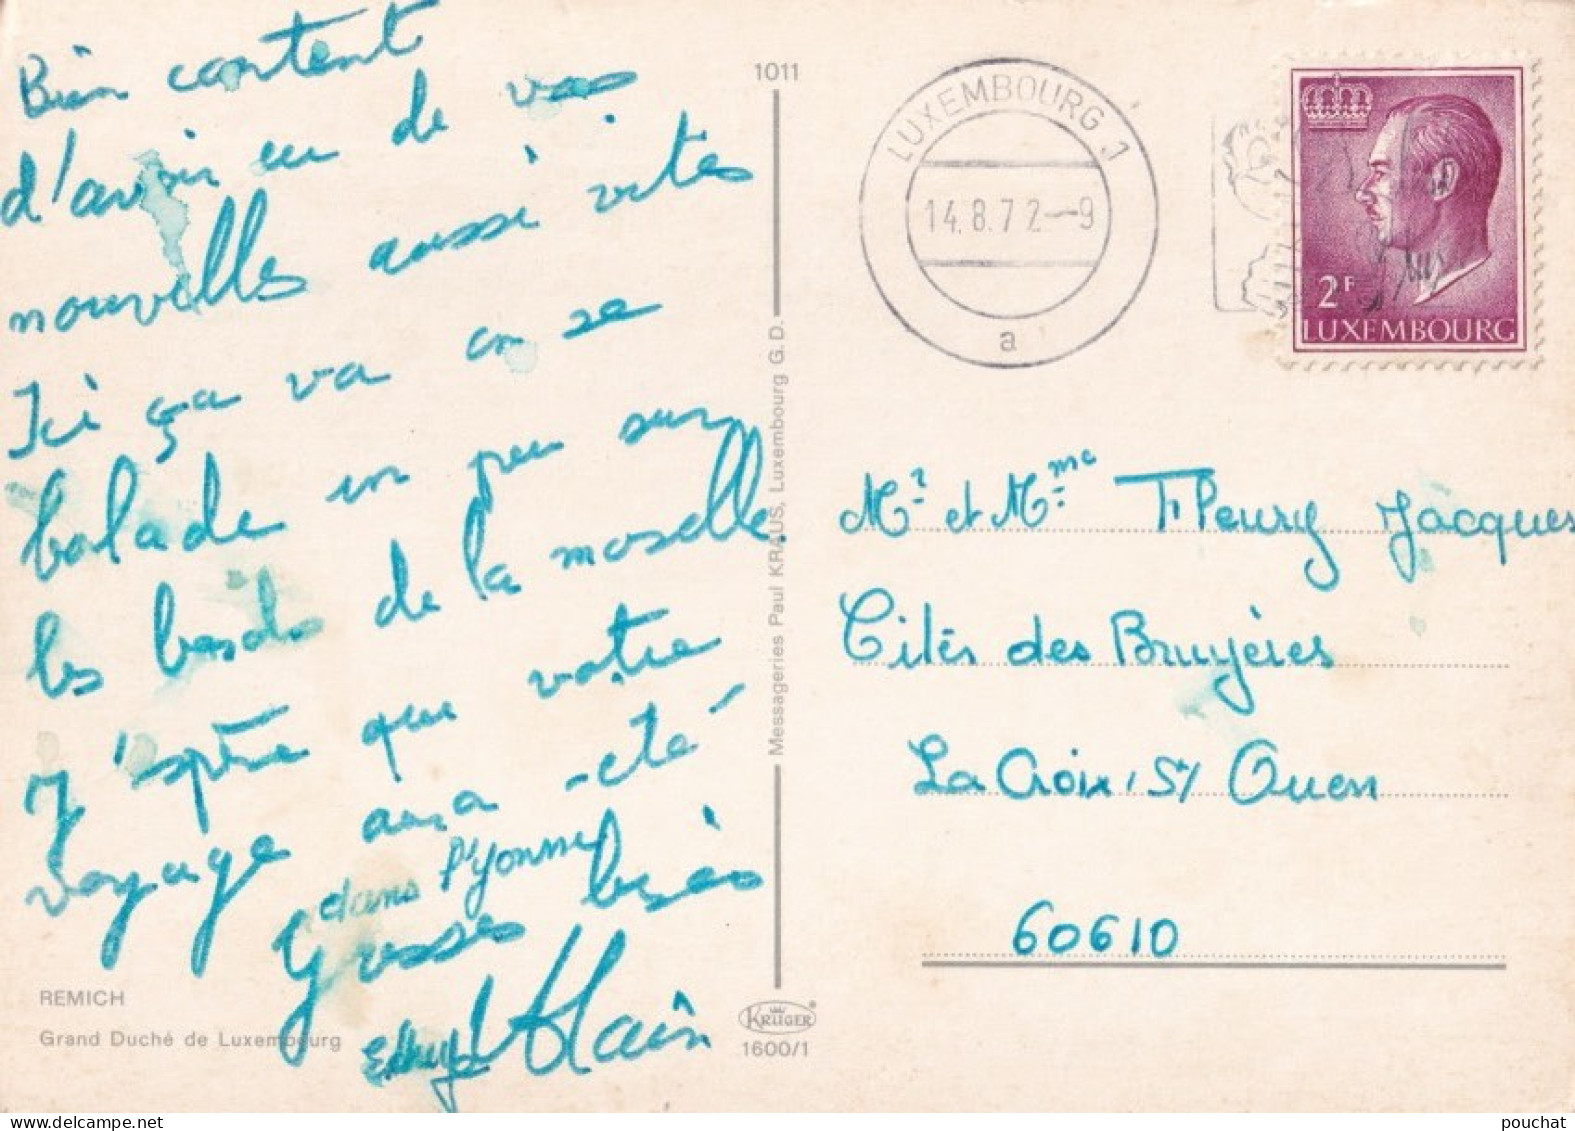 Bien content
d'avoir eu de vos
nouvelles aussi vites
Ici ça va on se
balade un peu sur
les bords de la moselle.
J'espère que votre
voyage aura été
dans l'Yonne
Grosses bises
Alain
REMICH
Grand Duché de Luxembourg
1011
Messageries Paul KRAUS, Luxembourg G.D.
KRÜGER
1600/1
LUXEMBOURG 1
14.8.72-9
a
2F
LUXEMBOURG
Mr et Mme Fleury Jacques
Cités des Bruyères
La Croix St Ouen
60610
pouchat
delcampe.net